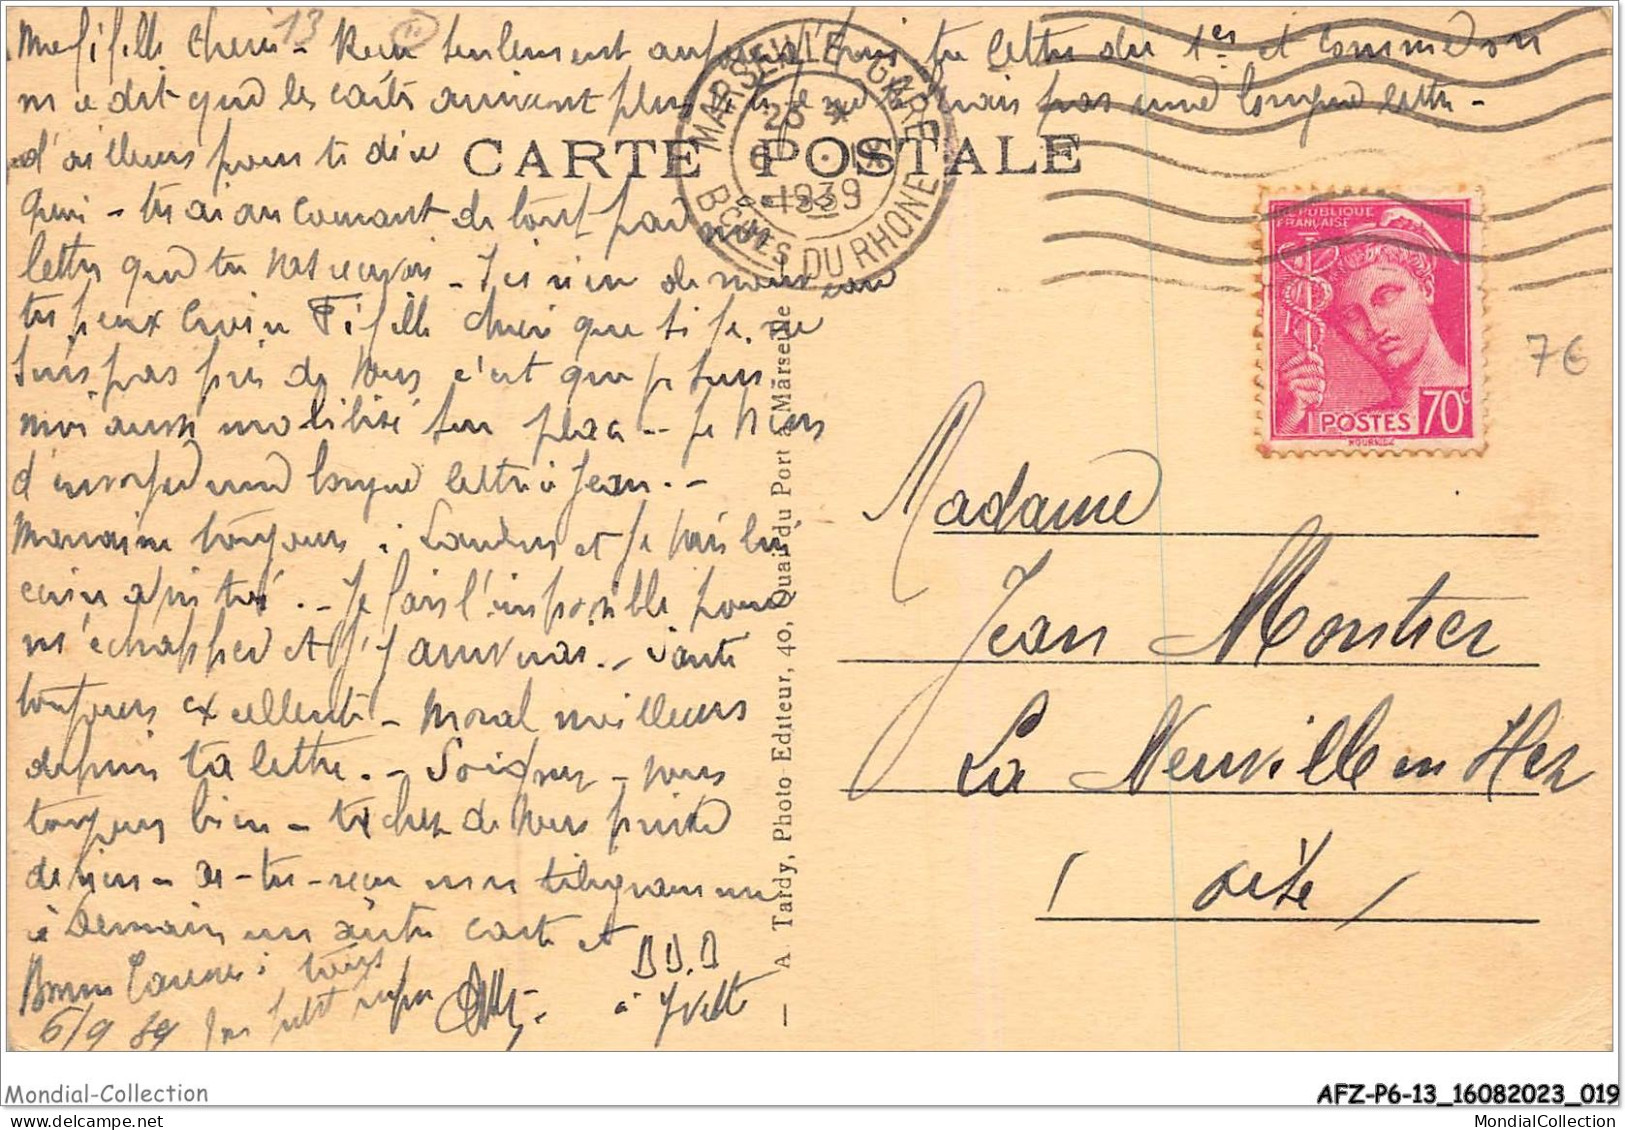 13
chérie - Reçu seulement aujourd'hui ta lettre du 1er et comme on
me dit que les cartes arrivent plus je ne fais pas une longue lettre -
d'ailleurs pour te dire
CARTE POSTALE
quoi - tu as au courant de tout par mes
lettres que tu as recevoir - Ici rien de nouveau
tu peux croire Fifille chérie que si je ne
suis pas près de vous c'est que je suis
moi aussi mobilisé sur place - je viens
d'envoyer une longue lettre à Jean . -
Marraine toujours à et je vais lui
écrire . - Je fais l'impossible pour
m'échapper et j'y arriverai . - Santé
toujours excellente - Moral meilleurs
depuis ta lettre . - Soignez - vous
toujours bien - tachez de vous priver
de rien - as-tu-reçu mon télégramme
à Demain une autre carte et
Bons à tous
6/9 39
à Yvette
MARSEILLE-GARE
25 *
6 IX
1939
BCHES DU RHONE
REPUBLIQUE
FRANÇAISE
POSTES 70c
7€
Madame
Jean Montier
La Neuville en Hez
Oise
— A. Tardy, Photo Editeur, 40, Quai du Port à Marseille
Mondial-Collection
AFZ-P6-13_16082023_019
MondialCollection